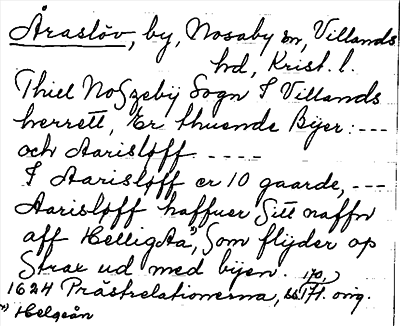 Åraslöv, by, Nosaby sn, Villands
hd, Krist. l.
Thiel Noszebÿ Sogn I Villands
herrett, Er thuende Bÿer: ---
och Aarisløff -----
I Aarisløff er 10 gaarde, ---
Aarisløff haffuer Sitt naffn
aff HelligAa*), Som flÿder op
Strax ud med bÿen.
1624 Prästrelationerna, 170, 171. orig.
*) Helgeån